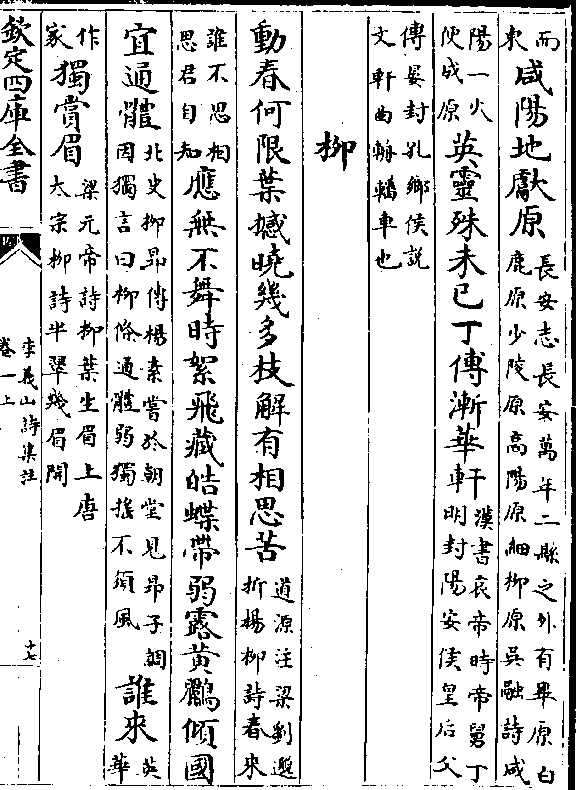 而東咸陽地獻原長安志長安萬年二縣之外有畢原白鹿原少陵原高陽原細柳原吳融詩咸
陽一火便成原英靈殊未已丁傅漸華軒漢書哀帝時帝舅丁明封陽安侯皇后父
傅晏封孔鄉侯説文軒曲輈轓車也
柳
動春何限葉撼曉幾多枝解有相思苦道源注梁劉邈折楊柳詩春來
誰不思相思君自知應無不舞時絮飛藏皓蝶帶弱露黄鸝傾國
宜通體北史柳昻傳楊素嘗於朝堂見昻子調因獨言曰柳條通體弱獨揺不須風誰來英華
作家獨賞眉梁元帝詩柳葉生眉上唐太宗柳詩半翠幾眉開
欽定四庫全書
李義山詩集注
卷一上
十七